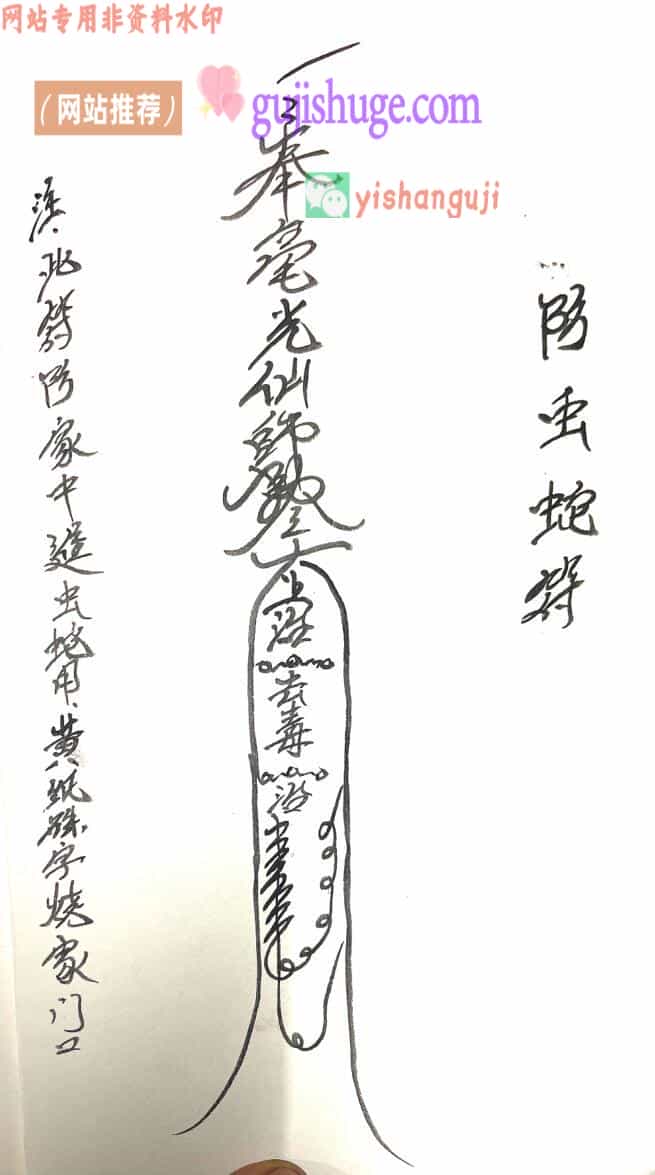 网站专用非资料水印
（网站推荐）
gujishuge.com
yishanguji
防虫蛇符
奉毫光仙师敕令
去毒
此符防家中进虫蛇用、黄纸硃字烧家门口